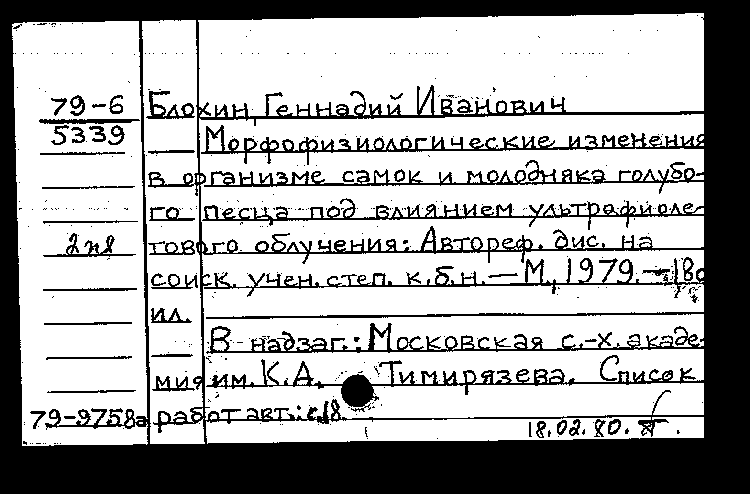 79-6 Блохин, Геннадий Иванович
5339 Морфофизиологические изменения
в организме самок и молодняка голубо-
го песца под влиянием ультрафиоле-
2 тового облучения: Автореф. дис. на
соиск. учен. степ. к.б.н. — М., 1979. —
ил.
В надзаг.: Московская с.-х. акаде-
мия им. К.А. Тимирязева. Список
79-9758а работ авт.: с. 18.
18.02.80.